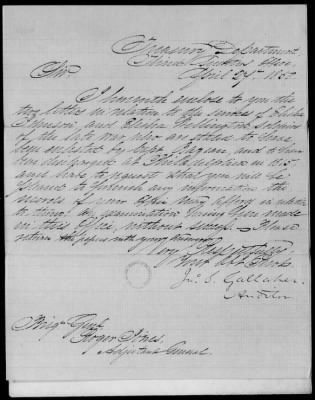 Treasury Department
Third Auditor's Office
April 27th 1850
Sir
I herewith enclose to you the
two letters in relation to the service of Elisha
and Elisha soldiers
of the late war who are stated to have
been enlisted by Capt and to have
been discharged at Philadelphia in 1815
and have to request that you will be
pleased to furnish any information the
records of your office may afford in relation
to them. An examination having been made
in this office, without success. Please
return the papers with your answer
Very Respectfully
Your Obt Servt
Jno. S. Gallaher
Auditor
Brigr Genl
Roger Jones
Adjutant General